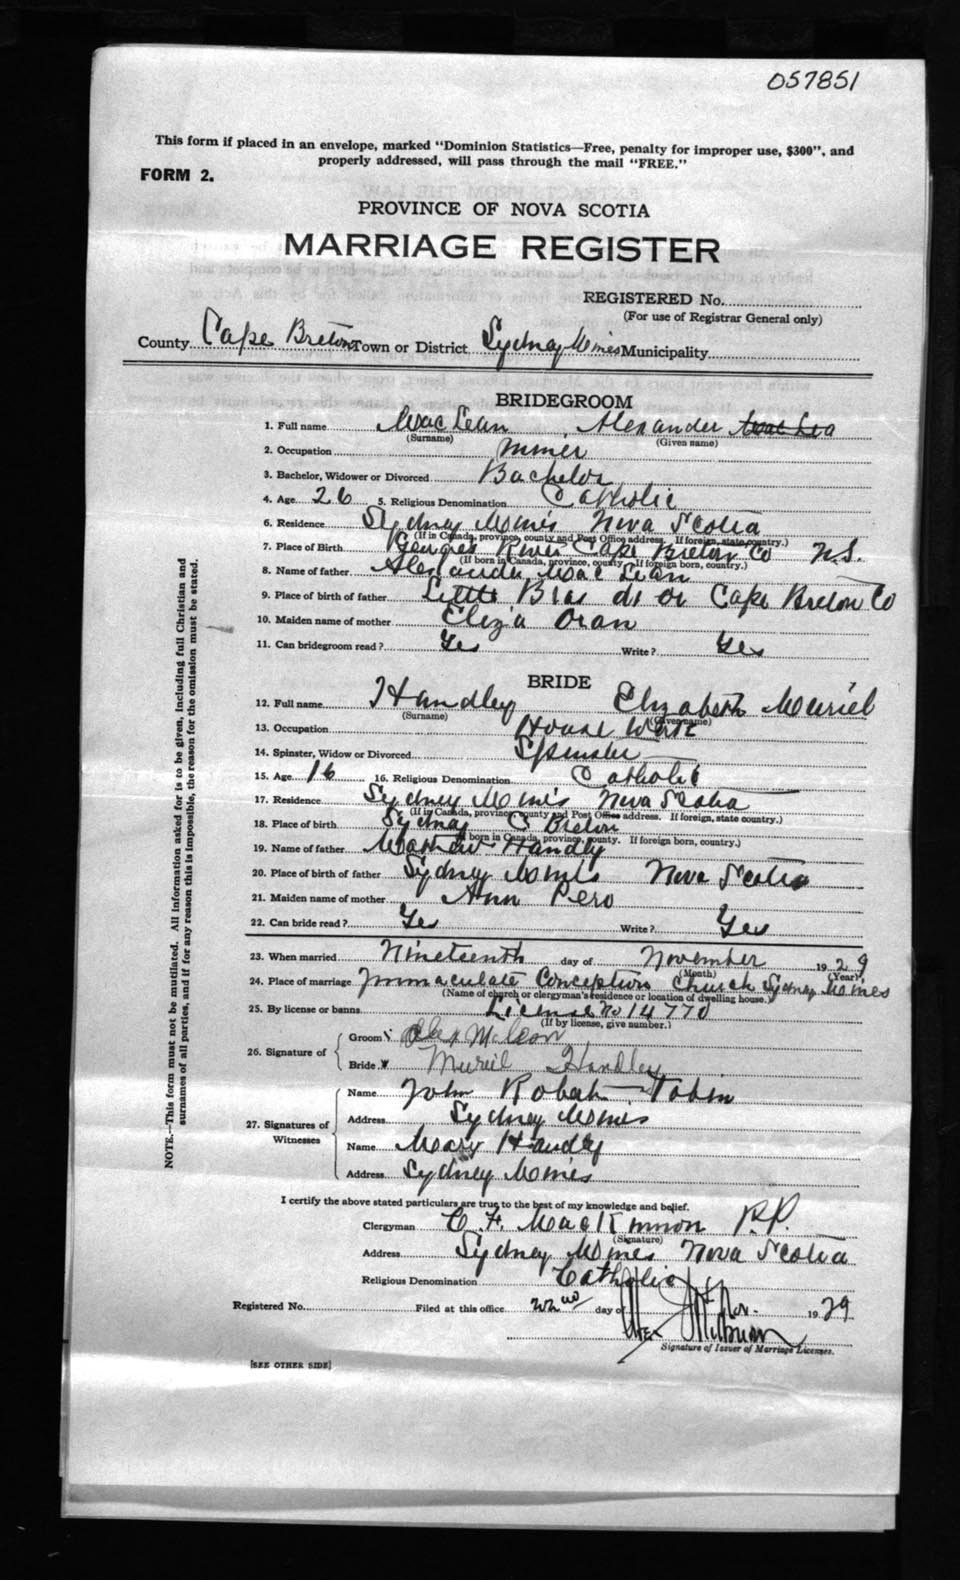 057851
This form if placed in an envelope, marked "Dominion Statistics—Free, penalty for improper use, $300", and
properly addressed, will pass through the mail "FREE."
FORM 2.
PROVINCE OF NOVA SCOTIA
MARRIAGE REGISTER
REGISTERED No.
(For use of Registrar General only)
County Cape Breton Town or District Sydney Mines Municipality
BRIDEGROOM
1. Full name MacLean Alexander
(Surname) (Given name)
2. Occupation miner
3. Bachelor, Widower or Divorced Bachelor
4. Age 26 5. Religious Denomination Catholic
6. Residence Sydney Mines Nova Scotia
(If in Canada, province, county and Post Office address. If foreign, state country.)
7. Place of Birth Georges River Cape Breton Co N.S.
(If born in Canada, province, county. If foreign born, country.)
8. Name of father Alexander MacLean
9. Place of birth of father Little Bras d'or Cape Breton Co
10. Maiden name of mother Eliza Oran
11. Can bridegroom read? Yes Write? Yes
BRIDE
12. Full name Handley Elizabeth Muriel
(Surname) (Given name)
13. Occupation House Work
14. Spinster, Widow or Divorced Spinster
15. Age 16 16. Religious Denomination Catholic
17. Residence Sydney Mines Nova Scotia
(If in Canada, province, county and Post Office address. If foreign, state country.)
18. Place of birth Sydney C Breton
(If born in Canada, province, county. If foreign born, country.)
19. Name of father Mathew Handly
20. Place of birth of father Sydney Mines Nova Scotia
21. Maiden name of mother Ann Pero
22. Can bride read? Yes Write? Yes
23. When married Nineteenth day of November 1929
(Month) (Year)
24. Place of marriage Immaculate Conception Church Sydney Mines
(Name of church or clergyman's residence or location of dwelling house.)
25. By license or banns License No 14770
(If by license, give number.)
26. Signature of
Groom Alex McLean
Bride Muriel Handley
27. Signatures of Witnesses
Name John Robert Tobin
Address Sydney Mines
Name Mary Handly
Address Sydney Mines
I certify the above stated particulars are true to the best of my knowledge and belief.
Clergyman C. F. MacKinnon P.P.
(Signature)
Address Sydney Mines Nova Scotia
Religious Denomination Catholic
Registered No. Filed at this office 22nd day of Nov. 1929
Signature of Issuer of Marriage Licenses.
[SEE OTHER SIDE]
NOTE.—This form must not be mutilated. All information asked for is to be given, including full Christian and
surnames of all parties, and if for any reason this is impossible, the reason for the omission must be stated.